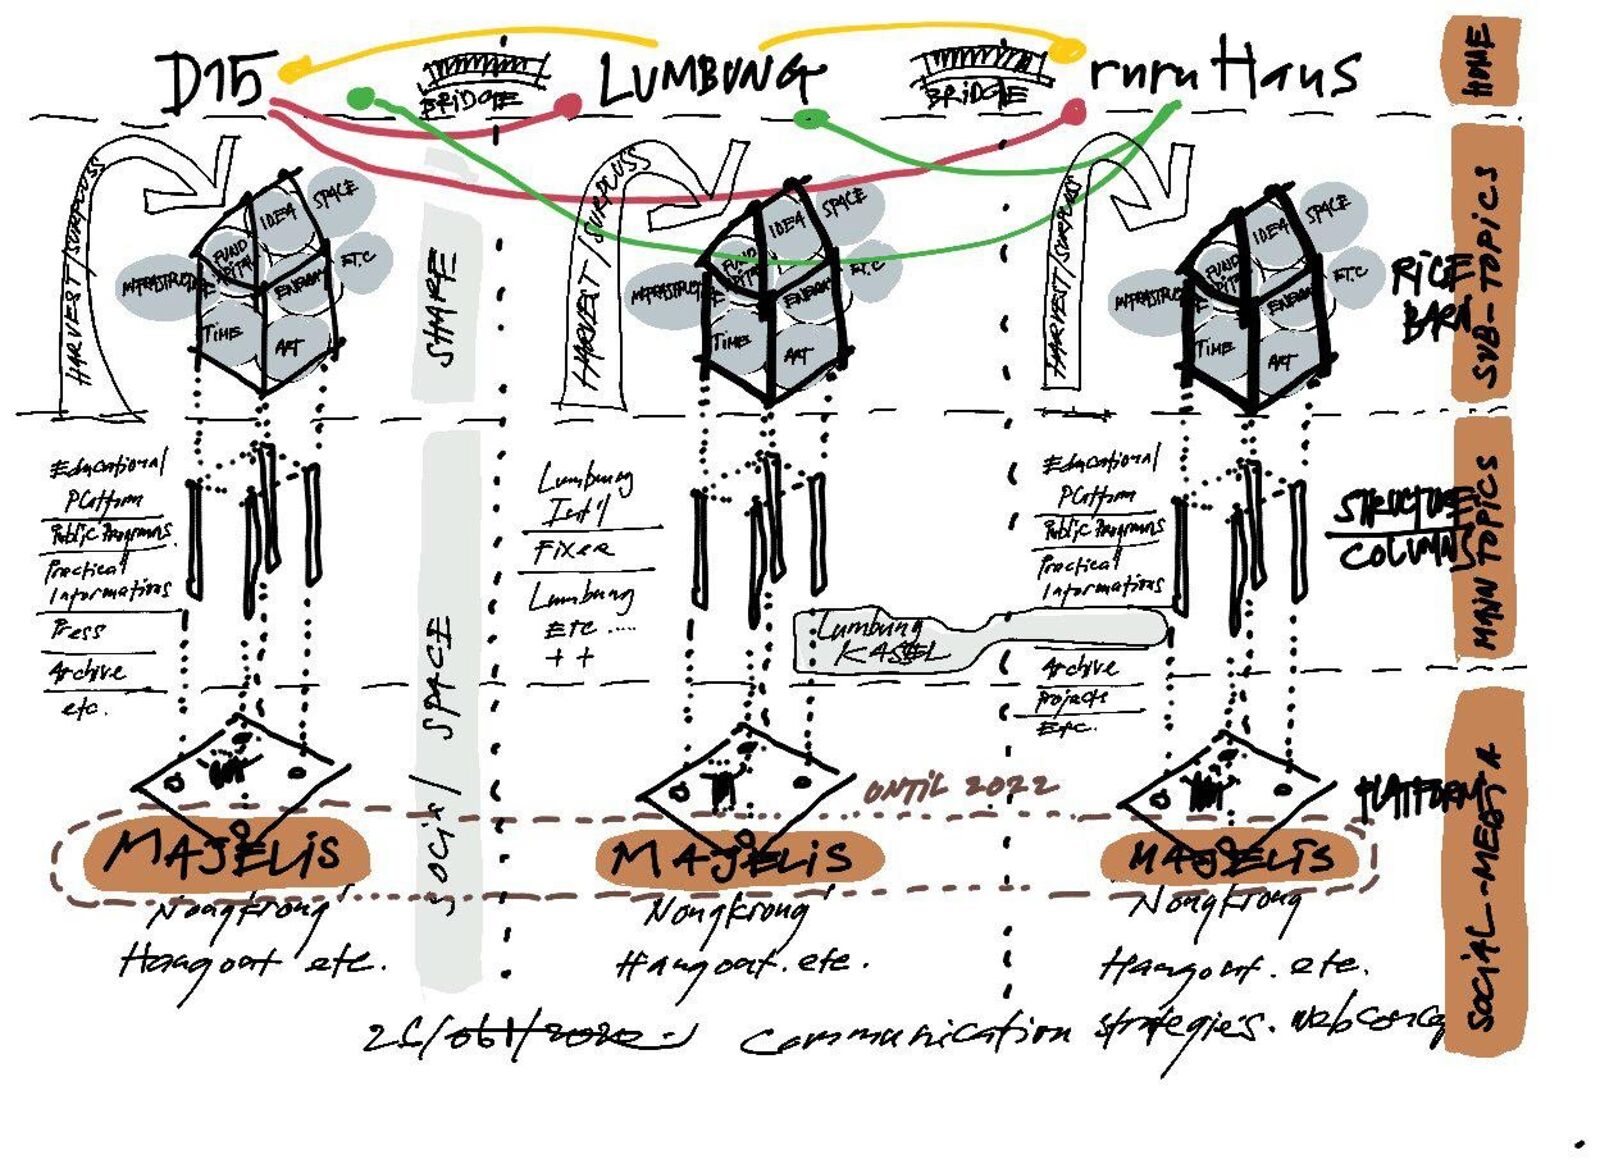 D15
BRIDGE
LUMBUNG
BRIDGE
ruru Haus
HOME
HARVEST/SURPLUSS
IDEA
SPACE
FUND
ETC
ENERGY
TIME
ART
SHARE
HARVEST/SURPLUSS
IDEA
SPACE
FUND
ETC
ENERGY
TIME
ART
HARVEST/SURPLUSS
IDEA
SPACE
FUND
ETC
ENERGY
TIME
ART
RICE
BARN
SUB-TOPICS
Educational
Platform
Public Programs
Practical
Informations
Press
Archive
etc.
Lumbung
FIXER
Lumbung
ETC .....
+ +
Lumbung
KASSEL
Educational
Platform
Public Programs
Practical
Informations
Archive
Projects
Etc.
STRUCTURE
COLUMNS
MAIN TOPICS
SOCIAL / SPACE
UNTIL 2022
PLATFORM
MAJELIS
Nongkrong
Hangout etc.
MAJELIS
Nongkrong
Hangout. etc.
MAJELIS
Nongkrong
Hangout. etc.
SOCIAL-MEDIA
Communication strategies.